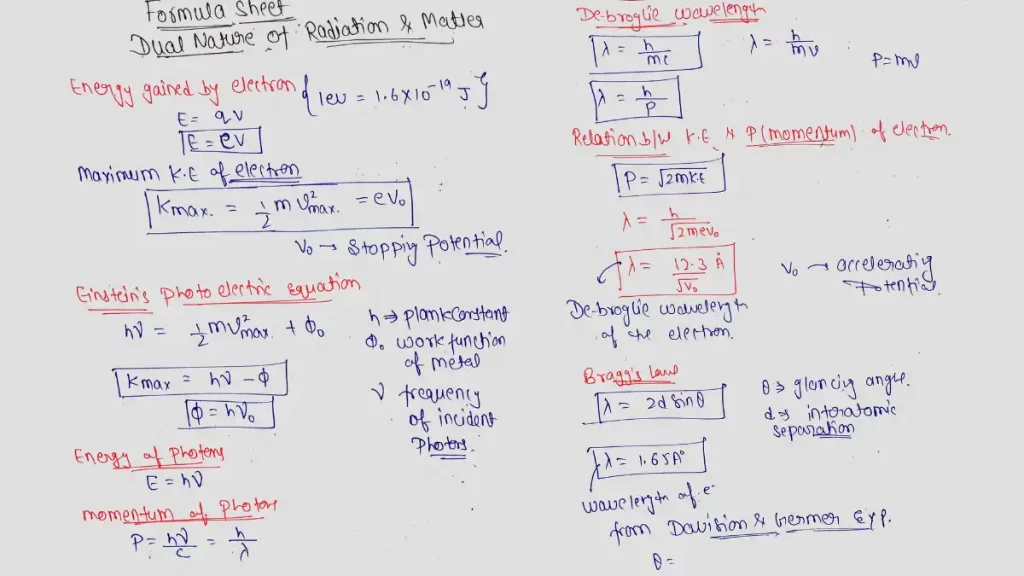 Formula Sheet
Dual Nature of Radiation & Matter
Energy gained by electron {1eV = 1.6×10⁻¹⁹ J}
E = qV
E = eV
Maximum K.E of electron
Kmax. = 1/2 m v²max. = eV₀
V₀ → Stopping Potential.
Einstein's Photo electric Equation
hν = 1/2 mv²max. + Φ₀
h → plank constant
Φ₀ work function
of metal
Kmax = hν - Φ
Φ = hν₀
ν frequency
of incident
Photons.
Energy of Photons
E = hν
momentum of Photons
P = hν/c = h/λ
De-broglie wavelength
λ = h/mc
λ = h/mv
P = mv
λ = h/P
Relation b/w K.E & P(momentum) of electron.
P = √2mK.E
λ = h/√2meV₀
λ = 12.3/√V₀ Å
V₀ → accelerating
Potential.
De-broglie wavelength
of the electron.
Bragg's Law
λ = 2d Sinθ
θ → glancing angle.
d → interatomic
separation
λ = 1.65A°
wavelength of e⁻
from Davision & Germer Exp.
θ =